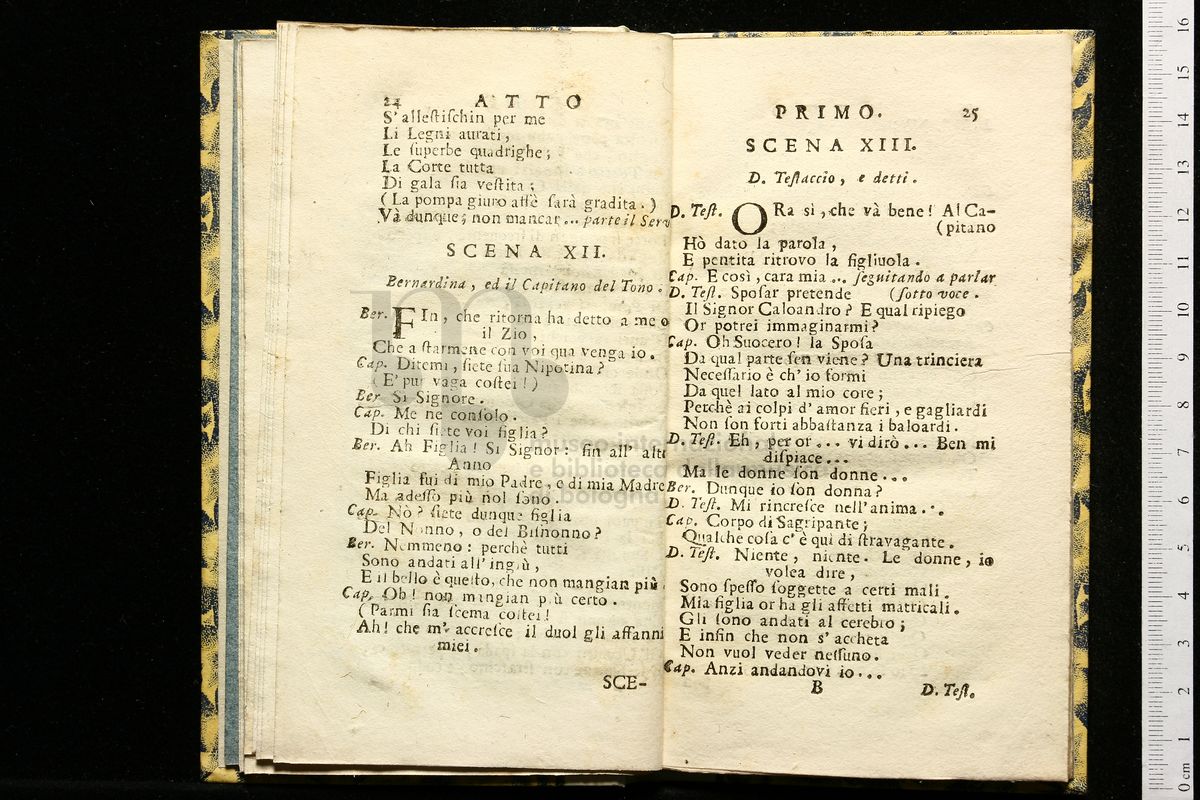 24 ATTO
S' allestischin per me
Li Legni aurati,
Le superbe quadrighe;
La Corte tutta
Di gala sia vestita;
(La pompa giuro affè sarà gradita.)
Và dunque; non mancar... parte il Serv
SCENA XII.
Bernardina, ed il Capitano del Tono.
Ber. FIn, che ritorna ha detto a me o
il Zio,
Che a starmene con voi qua venga io.
Cap. Ditemi, siete sua Nipotina?
E' pur vaga costei!)
Ber. Si Signore.
Cap. Me ne consolo.
Di chi siete voi figlia?
Ber. Ah Figlia! Si Signor: fin all' altr
Anno
Figlia fui di mio Padre, e di mia Madre
Ma adesso più nol sono.
Cap. Nò? siete dunque figlia
Del Nonno, o del Bisnonno?
Ber. Nemmeno: perchè tutti
Sono andati all' ingiù,
E il bello è questo, che non mangian più.
Cap. Oh! non mangian più certo.
(Parmi sia scema costei!
Ah! che m' accresce il duol gli affanni
miei.
SCE-
PRIMO. 25
SCENA XIII.
D. Testaccio, e detti.
D. Test. ORa sì, che và bene! Al Ca-
(pitano
Hò dato la parola,
E pentita ritrovo la figliuola.
Cap. E così, cara mia... seguitando a parlar
D. Test. Sposar pretende (sotto voce.
Il Signor Caloandro? E qual ripiego
Or potrei immaginarmi?
Cap. Oh Suocero! la Sposa
Da qual parte sen viene? Una trinciera
Necessario è ch' io formi
Da quel lato al mio core;
Perchè ai colpi d' amor fieri, e gagliardi
Non son forti abbastanza i baloardi.
D. Test. Eh, per or... vi dirò... Ben mi
dispiace...
Ma le donne son donne...
Ber. Dunque io son donna?
D. Test. Mi rincresce nell'anima...
Cap. Corpo di Sagripante;
Qualche cosa c' è qui di stravagante.
D. Test. Niente, niente. Le donne, io
volea dire,
Sono spesso soggette a certi mali.
Mia figlia or ha gli affetti matricali.
Gli sono andati al cerebro;
E infin che non s' accheta
Non vuol veder nessuno.
Cap. Anzi andandovi io...
B D. Test.
museo internazionale
e biblioteca della musica
bologna
0 cm 1 2 3 4 5 6 7 8 9 10 11 12 13 14 15 16